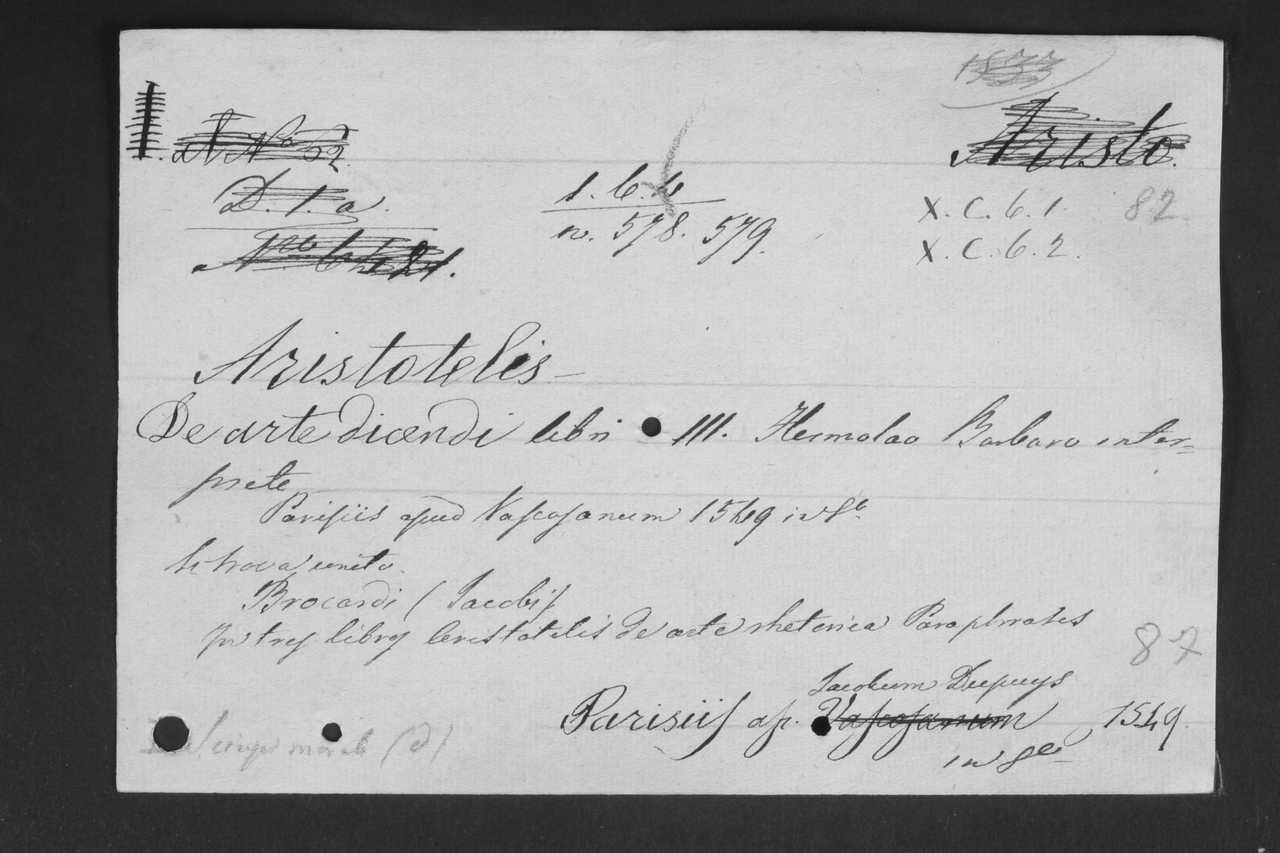 Aristo.
D. 1. a.
1. 6. 6
n. 578. 579.
X. C. 6. 1.
82
X. C. 6. 2.
Aristotelis
De arte dicendi libri III. Hermolao Barbaro inter=
prete
Parisiis apud Vascosanum 1549 in 8º
Si trova unito.
Brocardi (Jacobi)
In tres libros Aristotelis de arte rhetorica Paraphrases
87
Jacobum Dupuys
Parisiis ap. Vascosanum 1549.
in 8º